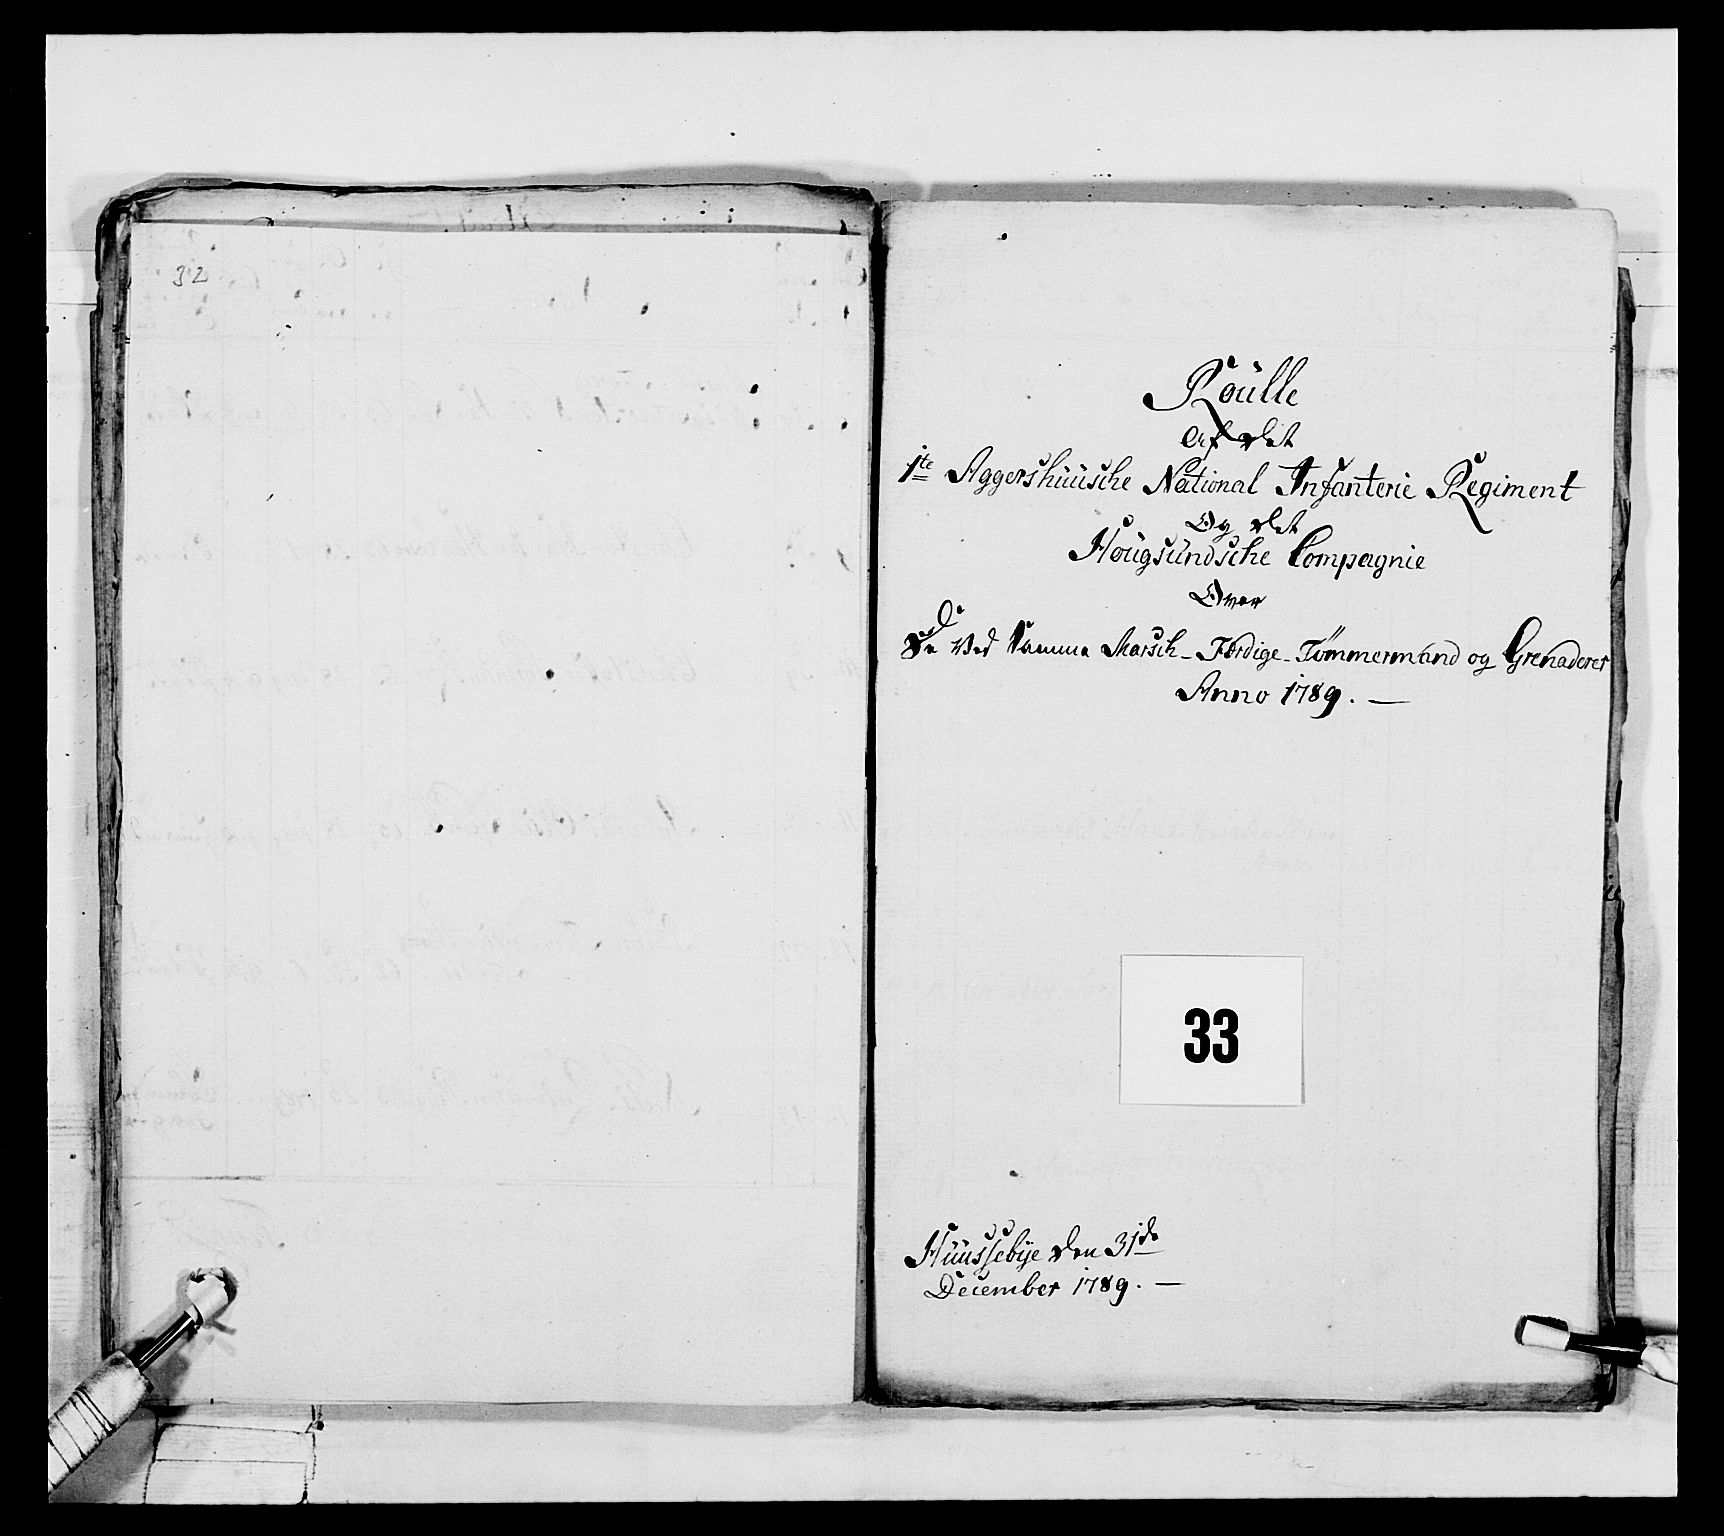 32
Roulle
Af det
1te Aggershuusche National Infanterie Regiment
Og det
Hougsundsche Compagnie
Over
De Ved Samme Marsch-Færdige-Tömmermænd og Grenaderer
Anno 1789. —
33
Huussebÿe den 31de
December 1789. —